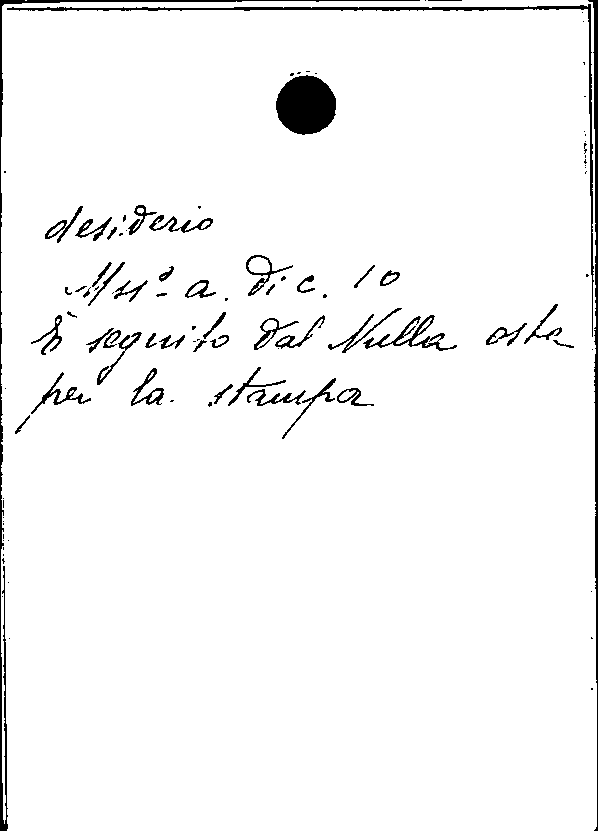 desiderio
Mssº a. di c. 10
È seguito dal Nulla osta
per la stampa